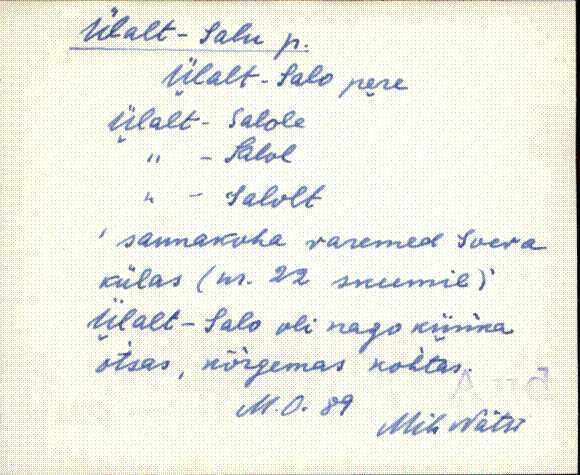 Ülalt-Salu p.
Ülalt-Salo pere
Ülalt- Salole
" - Salol
" - Salolt
' saunakoha varemed Soera
külas (nr. 22 skeemil)'
Ülalt-Salo oli nago künka
otsas, kõrgemas kohtas.
M.O. 89
Mili Nätsi